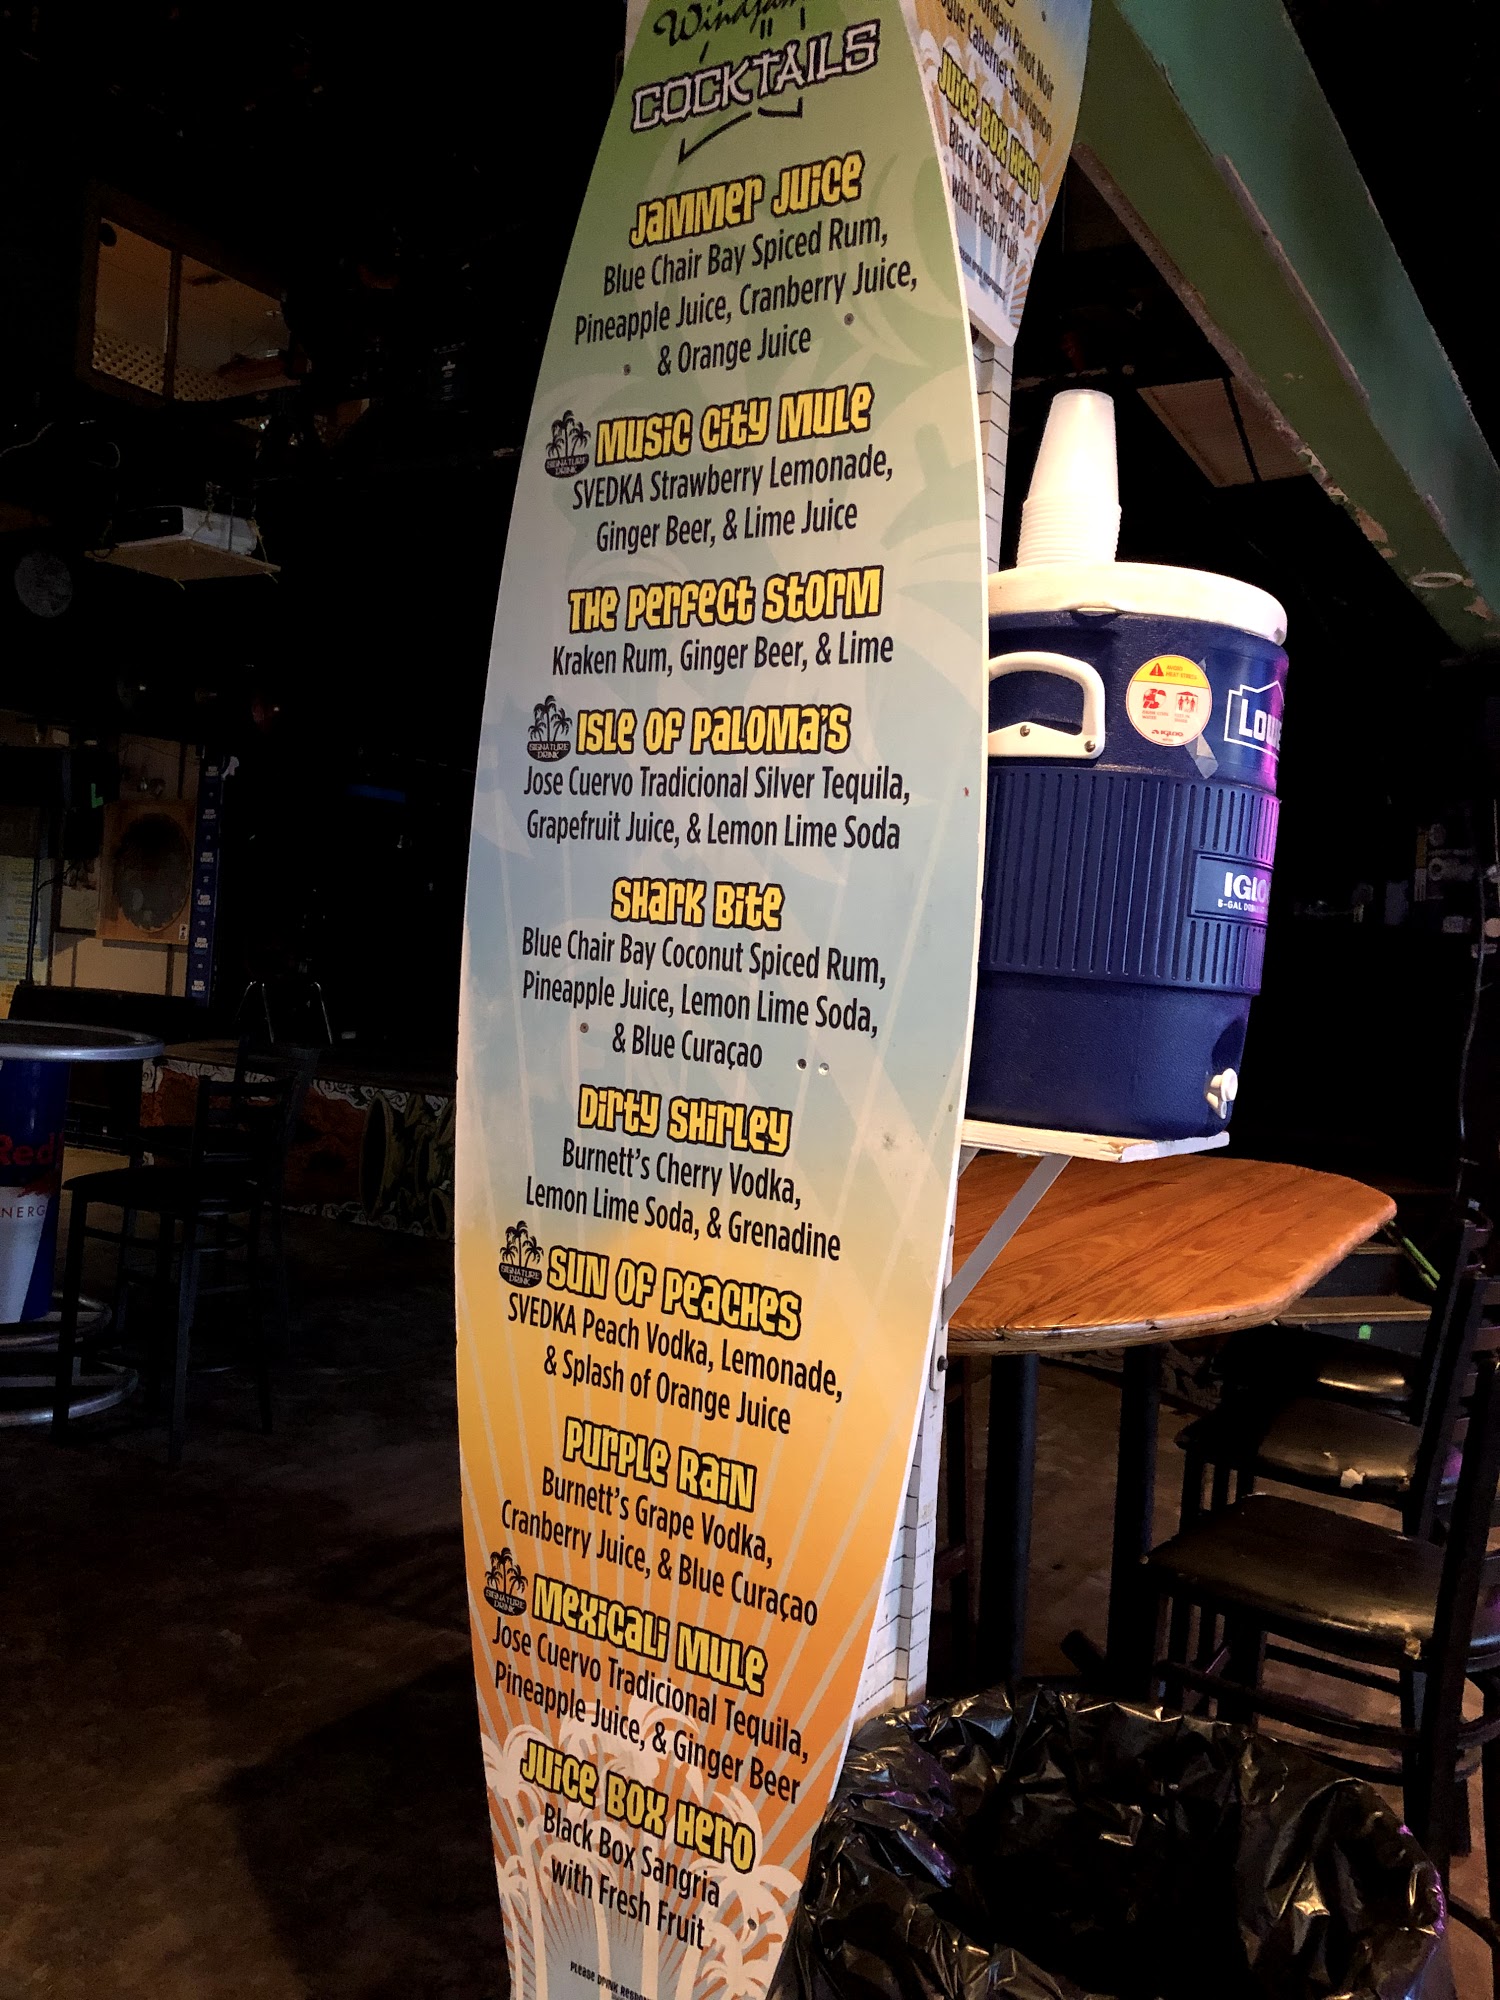 Windjam
COCKTAILS
JAMMER JUICE
Blue Chair Bay Spiced Rum,
Pineapple Juice, Cranberry Juice,
& Orange Juice
SIGNATURE
DRINK
MUSIC CITY MULE
SVEDKA Strawberry Lemonade,
Ginger Beer, & Lime Juice
THE PERFECT STORM
Kraken Rum, Ginger Beer, & Lime
SIGNATURE
DRINK
ISLE OF PALOMA'S
Jose Cuervo Tradicional Silver Tequila,
Grapefruit Juice, & Lemon Lime Soda
SHARK BITE
Blue Chair Bay Coconut Spiced Rum,
Pineapple Juice, Lemon Lime Soda,
& Blue Curaçao
DIRTY SHIRLEY
Burnett's Cherry Vodka,
Lemon Lime Soda, & Grenadine
SIGNATURE
DRINK
SUN OF PEACHES
SVEDKA Peach Vodka, Lemonade,
& Splash of Orange Juice
PURPLE RAIN
Burnett's Grape Vodka,
Cranberry Juice, & Blue Curaçao
SIGNATURE
DRINK
MEXICALI MULE
Jose Cuervo Tradicional Tequila,
Pineapple Juice, & Ginger Beer
JUICE BOX HERO
Black Box Sangria
with Fresh Fruit
PLEASE DRINK RESPON
Pinot Noir
Cabernet Sauvignon
JUICE BOX HERO
Black Box Sangria
with Fresh Fruit
AVOID
HEAT STRESS
IGLOO
LOWE
IGLO
5-GAL
Red
NERG
BUD
LIGHT